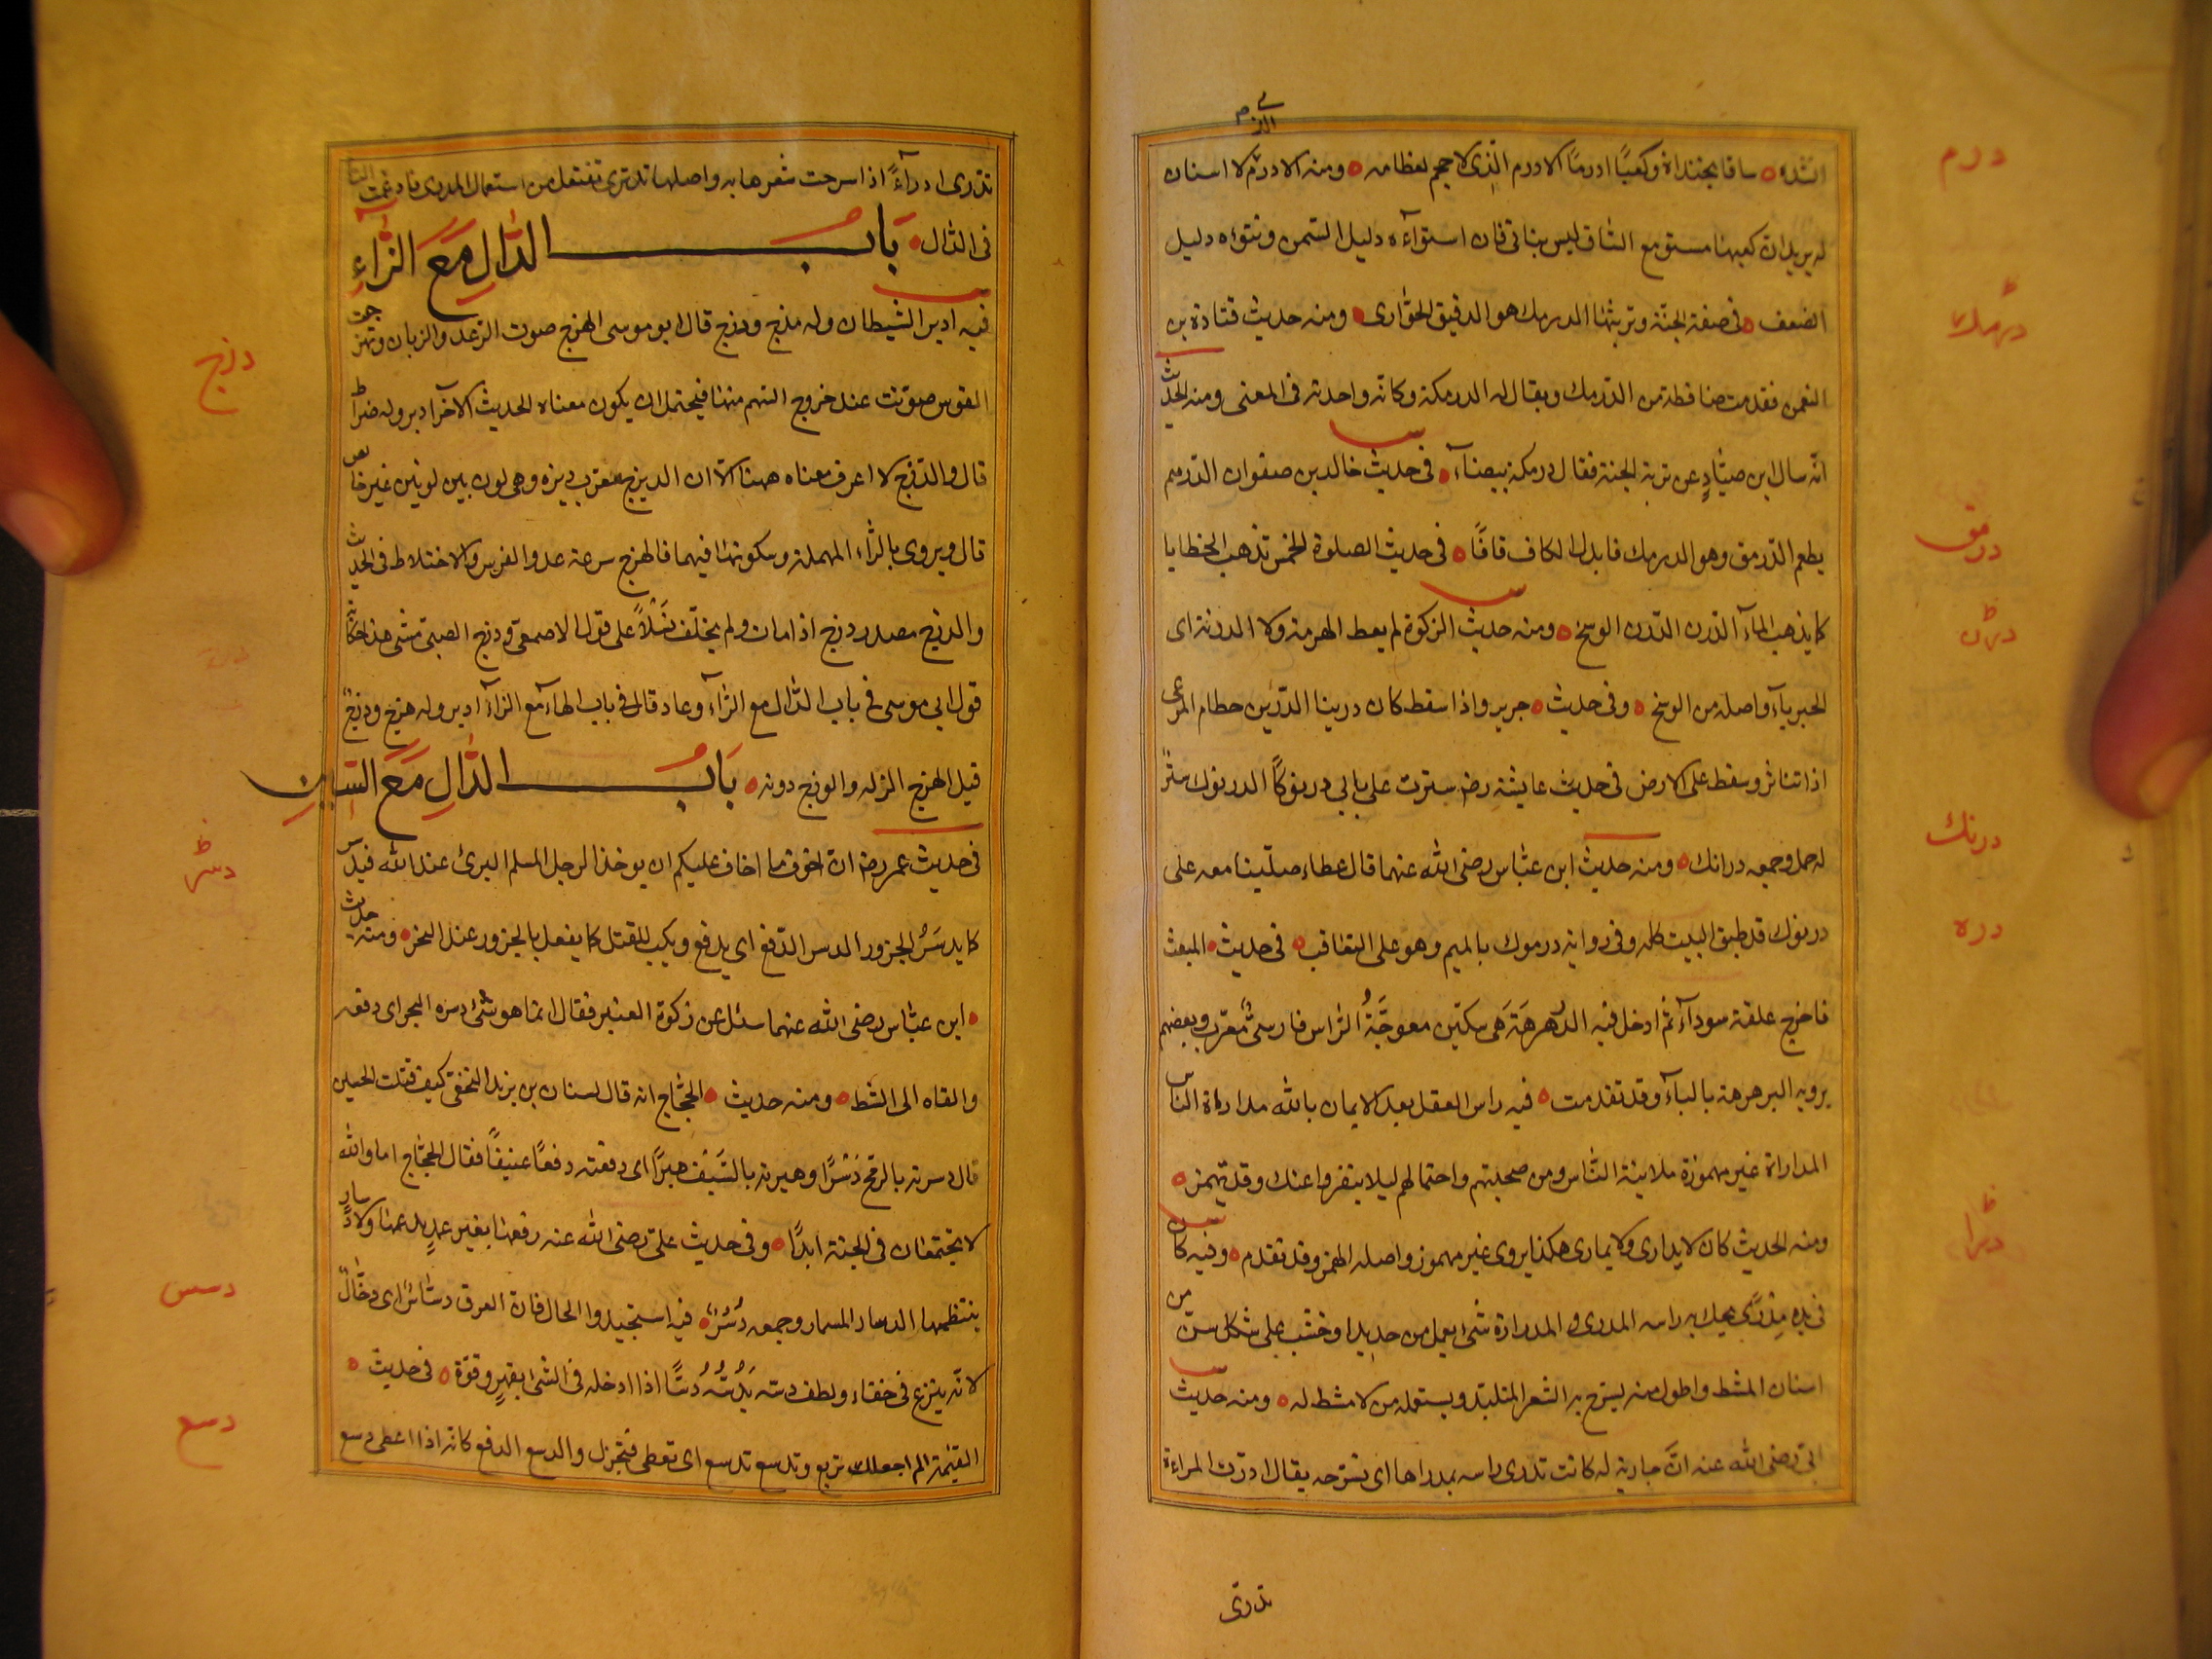 درم
انشده ساقا بخنداة وكعبًا ادرمًا الادرم الّذى لا حجم لعظامه ومنه الادرم لا اسنان
له يريد ان كعبها مستو مع الساق ليس بناتى فان استوآءه دليل السّمن ونتوءه دليل
درمك
الضعف فى صفة الجنّة وتربتها الدرمك هو الدقيق الحوّارى ومنه حديث قتادة بن
النعمن فقدمت ضافطة من الدّرمك ويقال له الدرمكة وكانّه واحدته فى المعنى ومنه الحديث
انّه سال ابن صيّادٍ عن تربة الجنة فقال درمكة بيضآء فى حديث خالد بن صفوان الدّرهم
درمق
يطعم الدّرمق وهو الدرمك فابدل الكاف قافًا فى حديث الصلوة الخمس تذهب الخطايا
درن
كما يذهب المآء الدّرن الدّرن الوسخ ومنه حديث الزكوة لم يعط الهرمة ولا الدرنة اى
الجربآء واصله من الوسخ وفى حديث جرير واذا سقط كان درينا الدّرين حطام المرعى
اذا تناثر وسقط على الارض فى حديث عايشة رضه سترت على بابى درنوكًا الدرنوك ستر
درنك
له خمل وجمعه درانك ومنه حديث ابن عبّاس رضى الله عنهما قال عطاء صلّينا معه على
دره
درنوك قد طبق البيت كله وفى رواية درموك بالميم وهو على التعاقب فى حديث المبعث
فاخرج علقة سودآء ثم ادخل فيه الدّرهرهة هى سكّين معوجّة الرّاس فارسىّ معرّب وبعضهم
يرويه البرهرهة بالبآء وقد تقدمت فيه راس العقل بعد الايمان بالله مداراة الناس
المداراة غير مهموزة ملاينة النّاس ومن صحبتهم واحتمالهم ليلا ينفروا عنك وقد تهمز
درا
ومنه الحديث كان لا يدارى ولا يمارى هكذا يروى غير مهموز واصله الهمز وقد تقدم وفيه كان
فى يده مِدْرًى يحك به راسه المدرى والمدراة شىء يعمل من حديد او خشب على شكل سنّ من
اسنان المشط واطول منه يسرّح به الشعر المتلبّد ويستعمله من لا مشط له ومنه حديث
ابىّ رضى الله عنه انّ جارية له كانت تدرى راسه بمدراها اى تسرّحه يقال ادّرت المراءة
تدرى
تدّرى ادرآءً اذا سرحت شعرها به واصلها تدترى تفتعل من استعمال المدرى فادغمت التا
فى الدّال بَابُ الدّال مَعَ الزّاءِ
درج
فيه ادبر الشيطان وله هزج ودزج قال ابو موسى الهزج صوت الرّعد والذبان وتهزجت
القوس صوّتت عند خروج السّهم منها فيحتمل ان يكون معناه الحديث الآخر ادبر وله ضراط
قال والدّزج لا اعرف معناه ههنا الّا ان الديزج معرب ديزه وهى لون بين لونين غير خالص
قال ويروى بالرّاء المهملة وسكونها فيهما فالهزج سرعة عدو الفرس والاختلاط فى الحديث
والدرج مصدر درج اذا مات ولم يخلّف نَسْلًا على قول الاصمعى ودرج الصبىّ مشى هذا حكاية
قول ابى موسى فى باب الدّال مع الزّآء وعاد قال فى باب الهآء مع الزّآء ادبر وله هزج ودزج
قيل الهزج الرنه والوزج دونه بَابُ الدّالِ مَعَ السّينِ
دسر
فى حديث عمر رضه ان اخوف ما اخاف عليكم ان يوخذ الرجل المسلم البرئ عند الله فيدسر
كما يدسَرُ الجزور الدسر الدّفع اى يدفع ويكب للقتل كما يفعل بالجزور عند النحر ومنه حديث
ابن عبّاس رضى الله عنهما سئل عن زكوة العنبر فقال انّما هو شىء دسره البحر اى دفعه
والقاه الى الشط ومنه حديث الحجّاج انه قال لسنان بن يزيد النخعى كيف قتلت الحسين
قال دسرته بالرّمح دَسْرًا وهبرته بالسَّيْف هبرًا اى دفعته دفعًا عنيفًا فقال الحجّاج اما والله
لا تجتمعان فى الجنة ابدًا وفى حديث علىّ رضى الله عنه رفعها بغير عمدٍ يدعمها ولا دسار
دسس
ينتظمها الدسار المسمار وجمعه دُسُر فيه استجيدوا الخال فان العرق دسّاسٌ اى دخّالٌ
لانّه ينزع فى خفاء ولطف دسّه يَدُسُّهُ دُسًّا اذا ادخله فى الشىء بقهرٍ وقوّة فى حديث
دسع
القيٰمة الم اجعلك تربع وتدسع تدسع اى تعطى فتجزل والدسع الدفع كانّه اذا اعطى دسع